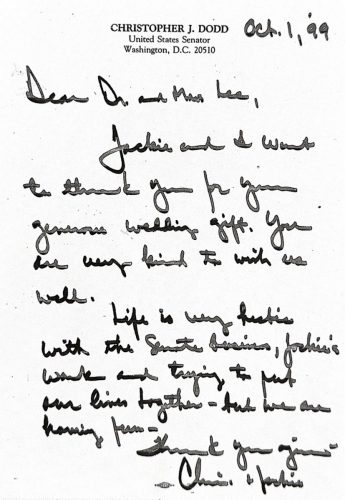 CHRISTOPHER J. DODD
United States Senator
Washington, D.C. 20510
Oct. 1, '99
Dear Dr. and Mrs Lee,
Jackie and I want
to thank you for your
generous wedding gift. You
are very kind to wish us
well.
Life is very hectic
with the Senate business, Jackie's
work and trying to put
our lives together - but we are
having fun -
Thank you again -
Chris + Jackie